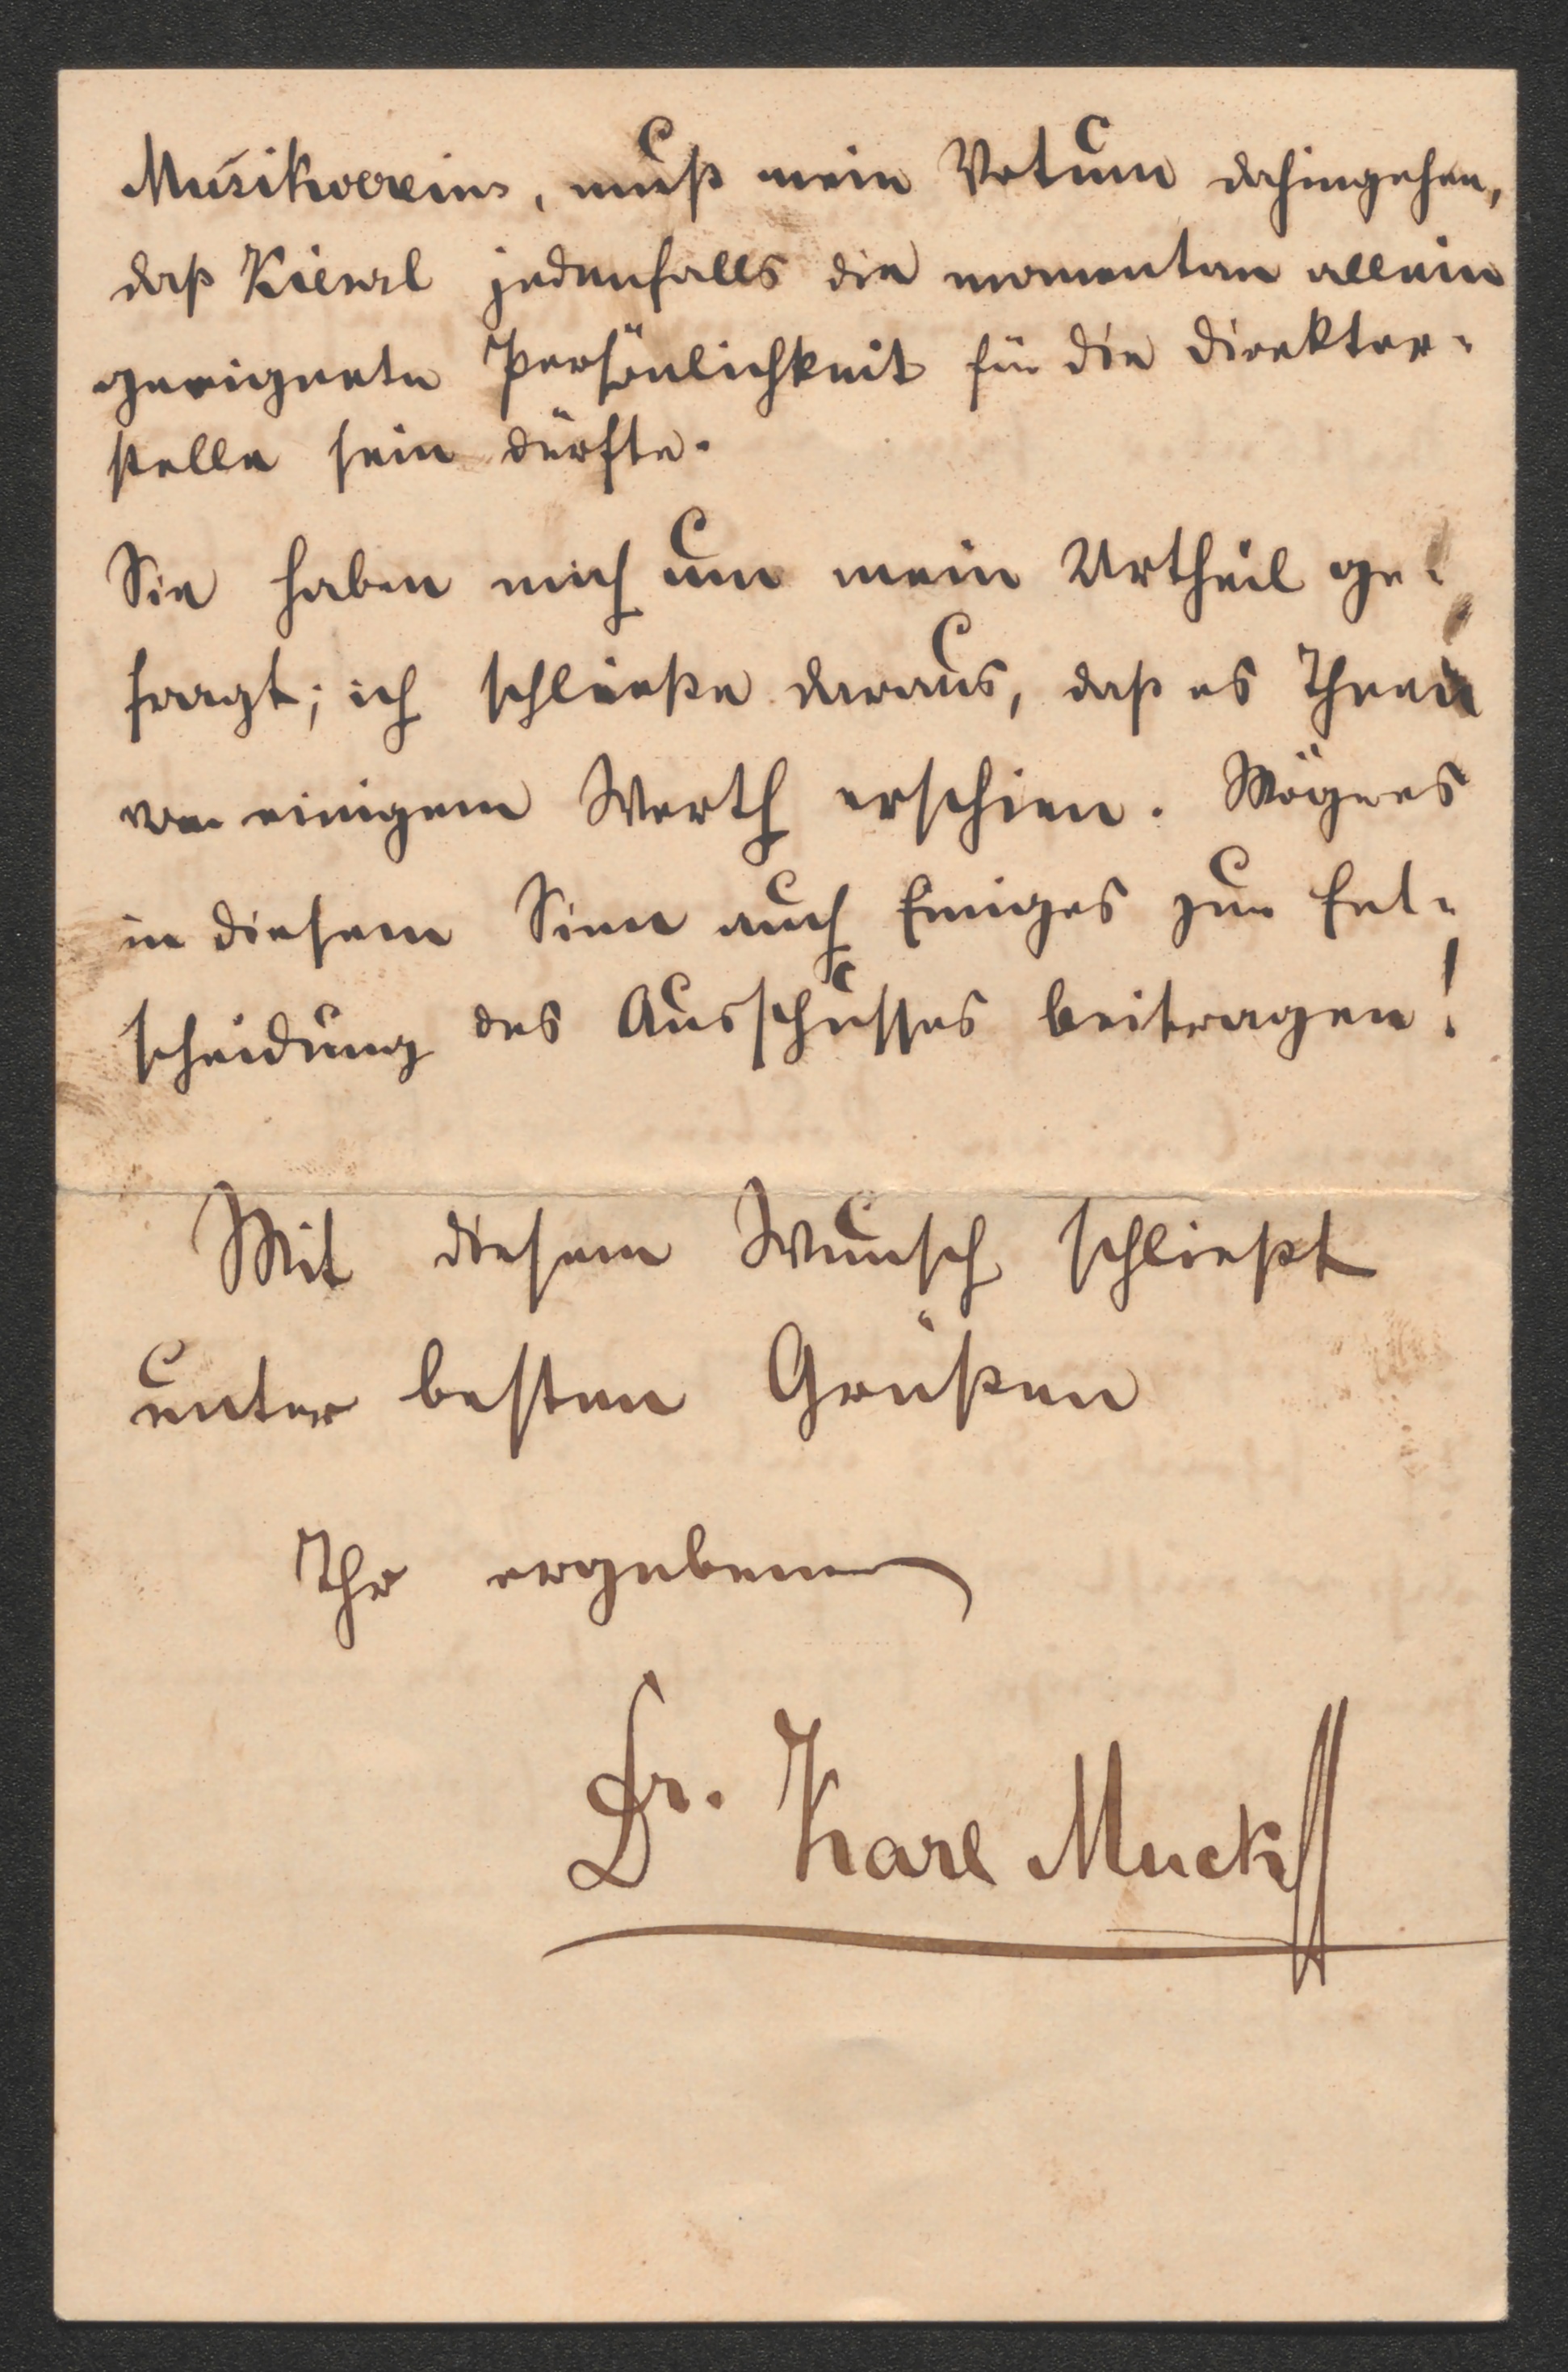 Musikvereins, muß mein Votum dahingehen,
daß Kienzl jedenfalls die momentan allein
geeignete Persönlichkeit für die Direktor-
stelle sein dürfte.
Sie haben mich um mein Urtheil ge-
fragt; ich schließe daraus, daß es Ihnen
von einigem Werth erschien. Möge es
in diesem Sinn auch Einiges zur Ent-
scheidung des Ausschusses beitragen!
Mit diesem Wunsch schließt
unter besten Grüßen
Ihr ergebener
Dr. Karl Muck